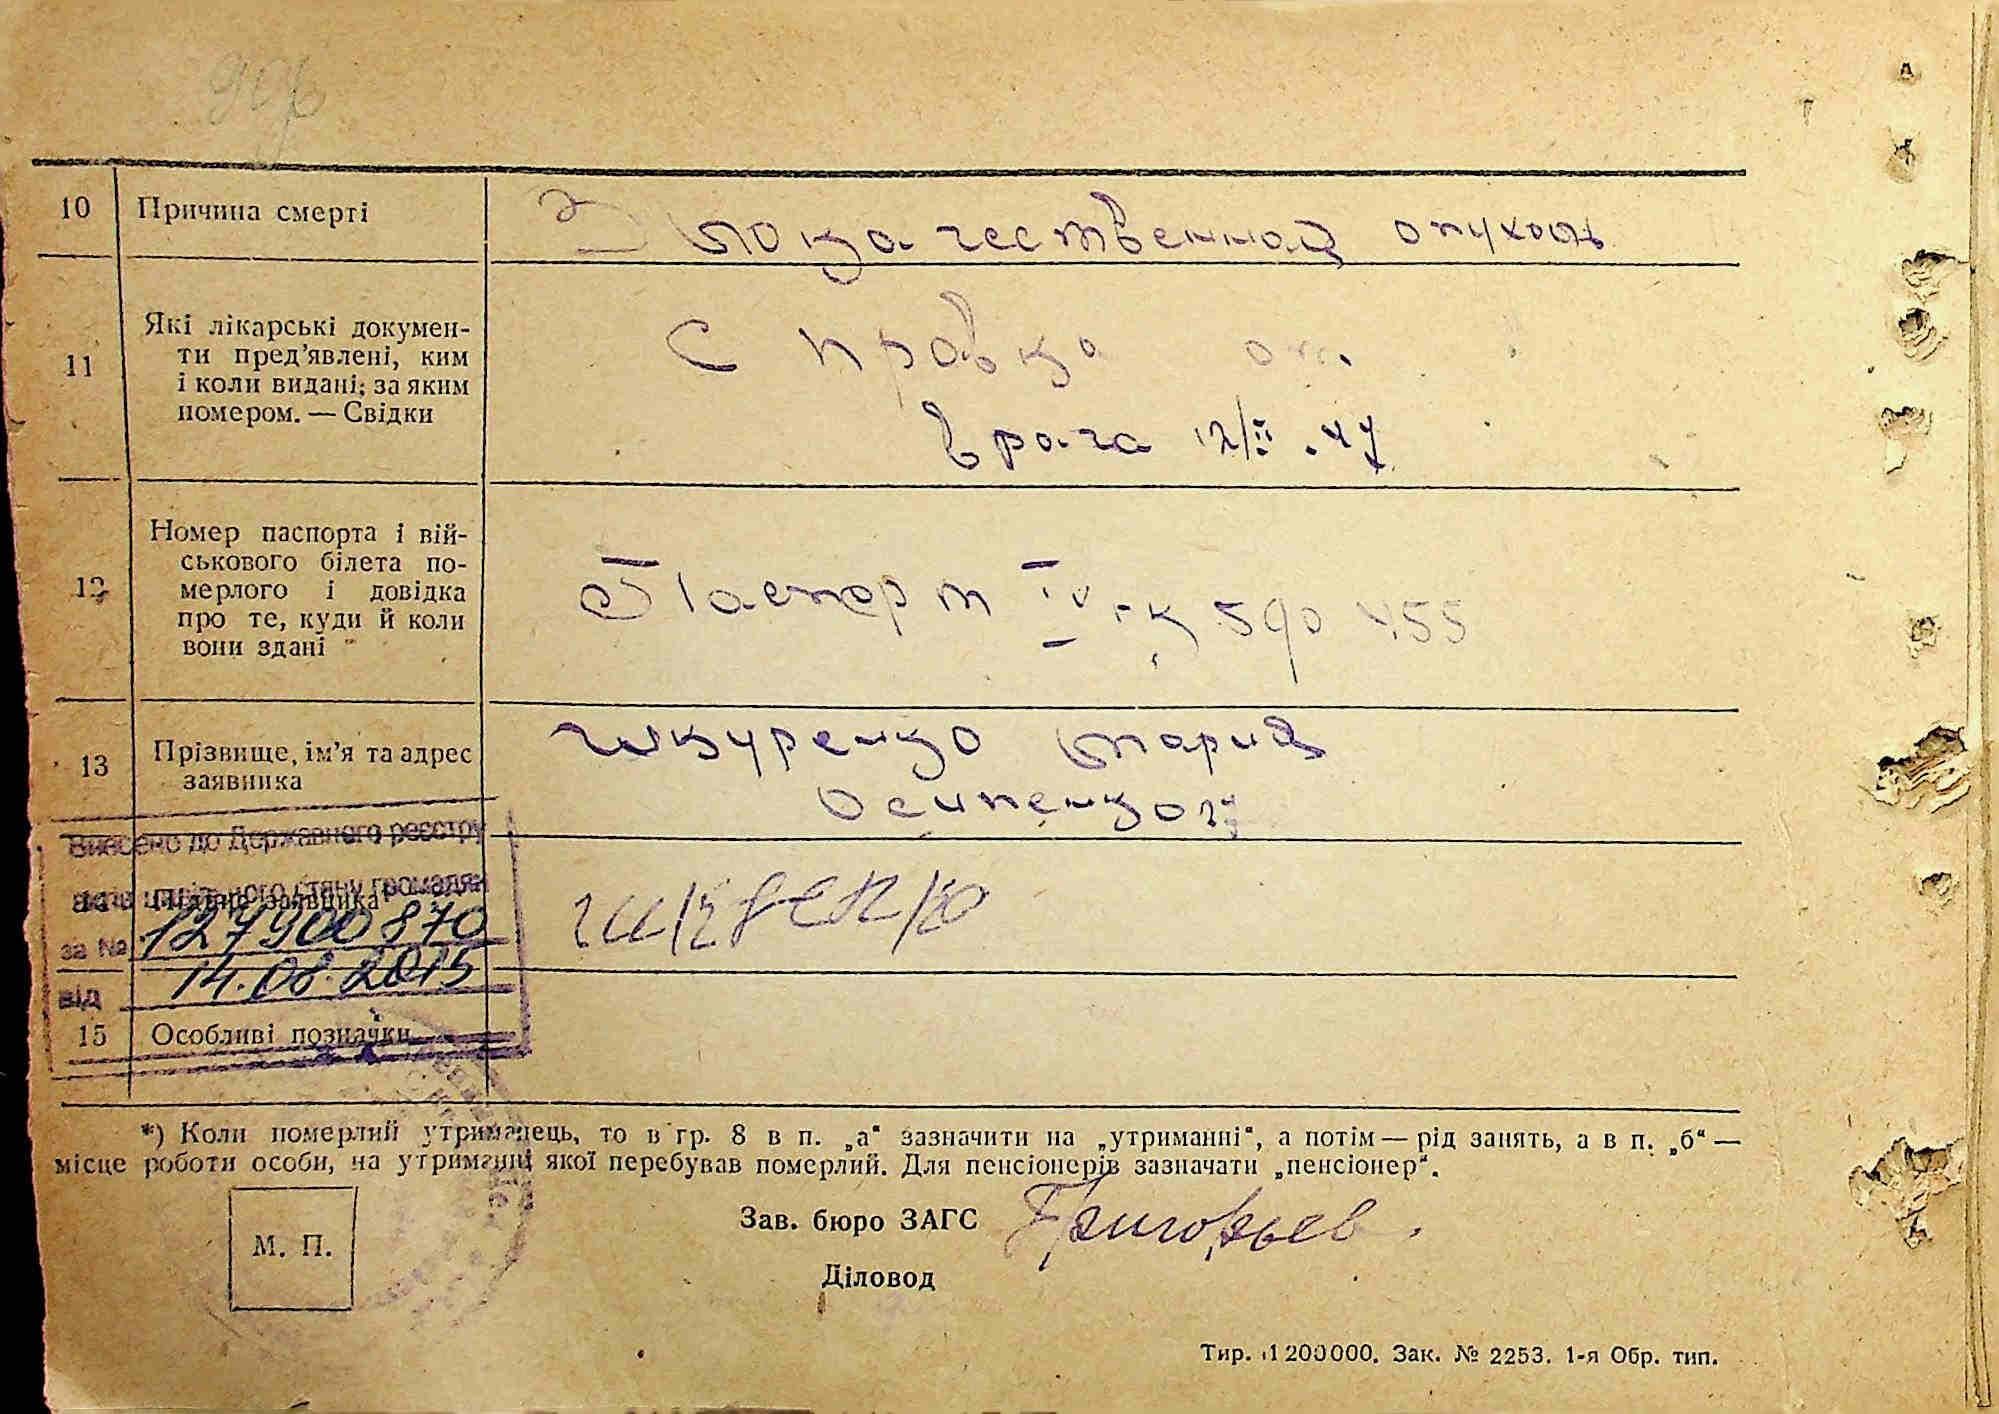 10 Причина смерті Злокачественная опухоль
11 Які лікарські докумен-
ти пред’явлені, ким
і коли видані; за яким
номером. — Свідки
Справка от
врача 12/II .47
12 Номер паспорта і вій-
ськового білета по-
мерлого і довідка
про те, куди й коли
вони здані
Паспорт IV 590 455
13 Прізвище, ім’я та адрес
заявника
Шкуренко Мария
Осипенко
Внесено до Державного реєстру
актів цивільного стану громадян
14 Підпис заявника
за № 127900870
від 14.08.2015
15 Особливі позначки
*) Коли померлий утриманець, то в гр. 8 в п. „а“ зазначити на „утриманні“, а потім — рід занять, а в п. „б“ —
місце роботи особи, на утриманні якої перебував померлий. Для пенсіонерів зазначати „пенсіонер“.
М. П.
Зав. бюро ЗАГС Григорьев
Діловод
Тир. 1 200000. Зак. № 2253. 1-я Обр. тип.